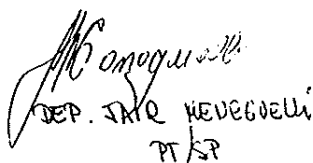 DEP. JAIR MENEGUELLI
PT/SP